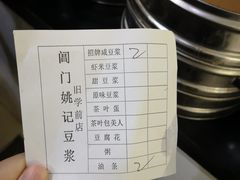 阊门姚记豆浆
旧学前店
招牌咸豆浆 2
虾米豆浆
甜豆浆
原味豆浆
茶叶蛋
茶叶包美人
豆腐花
粥
油条 2